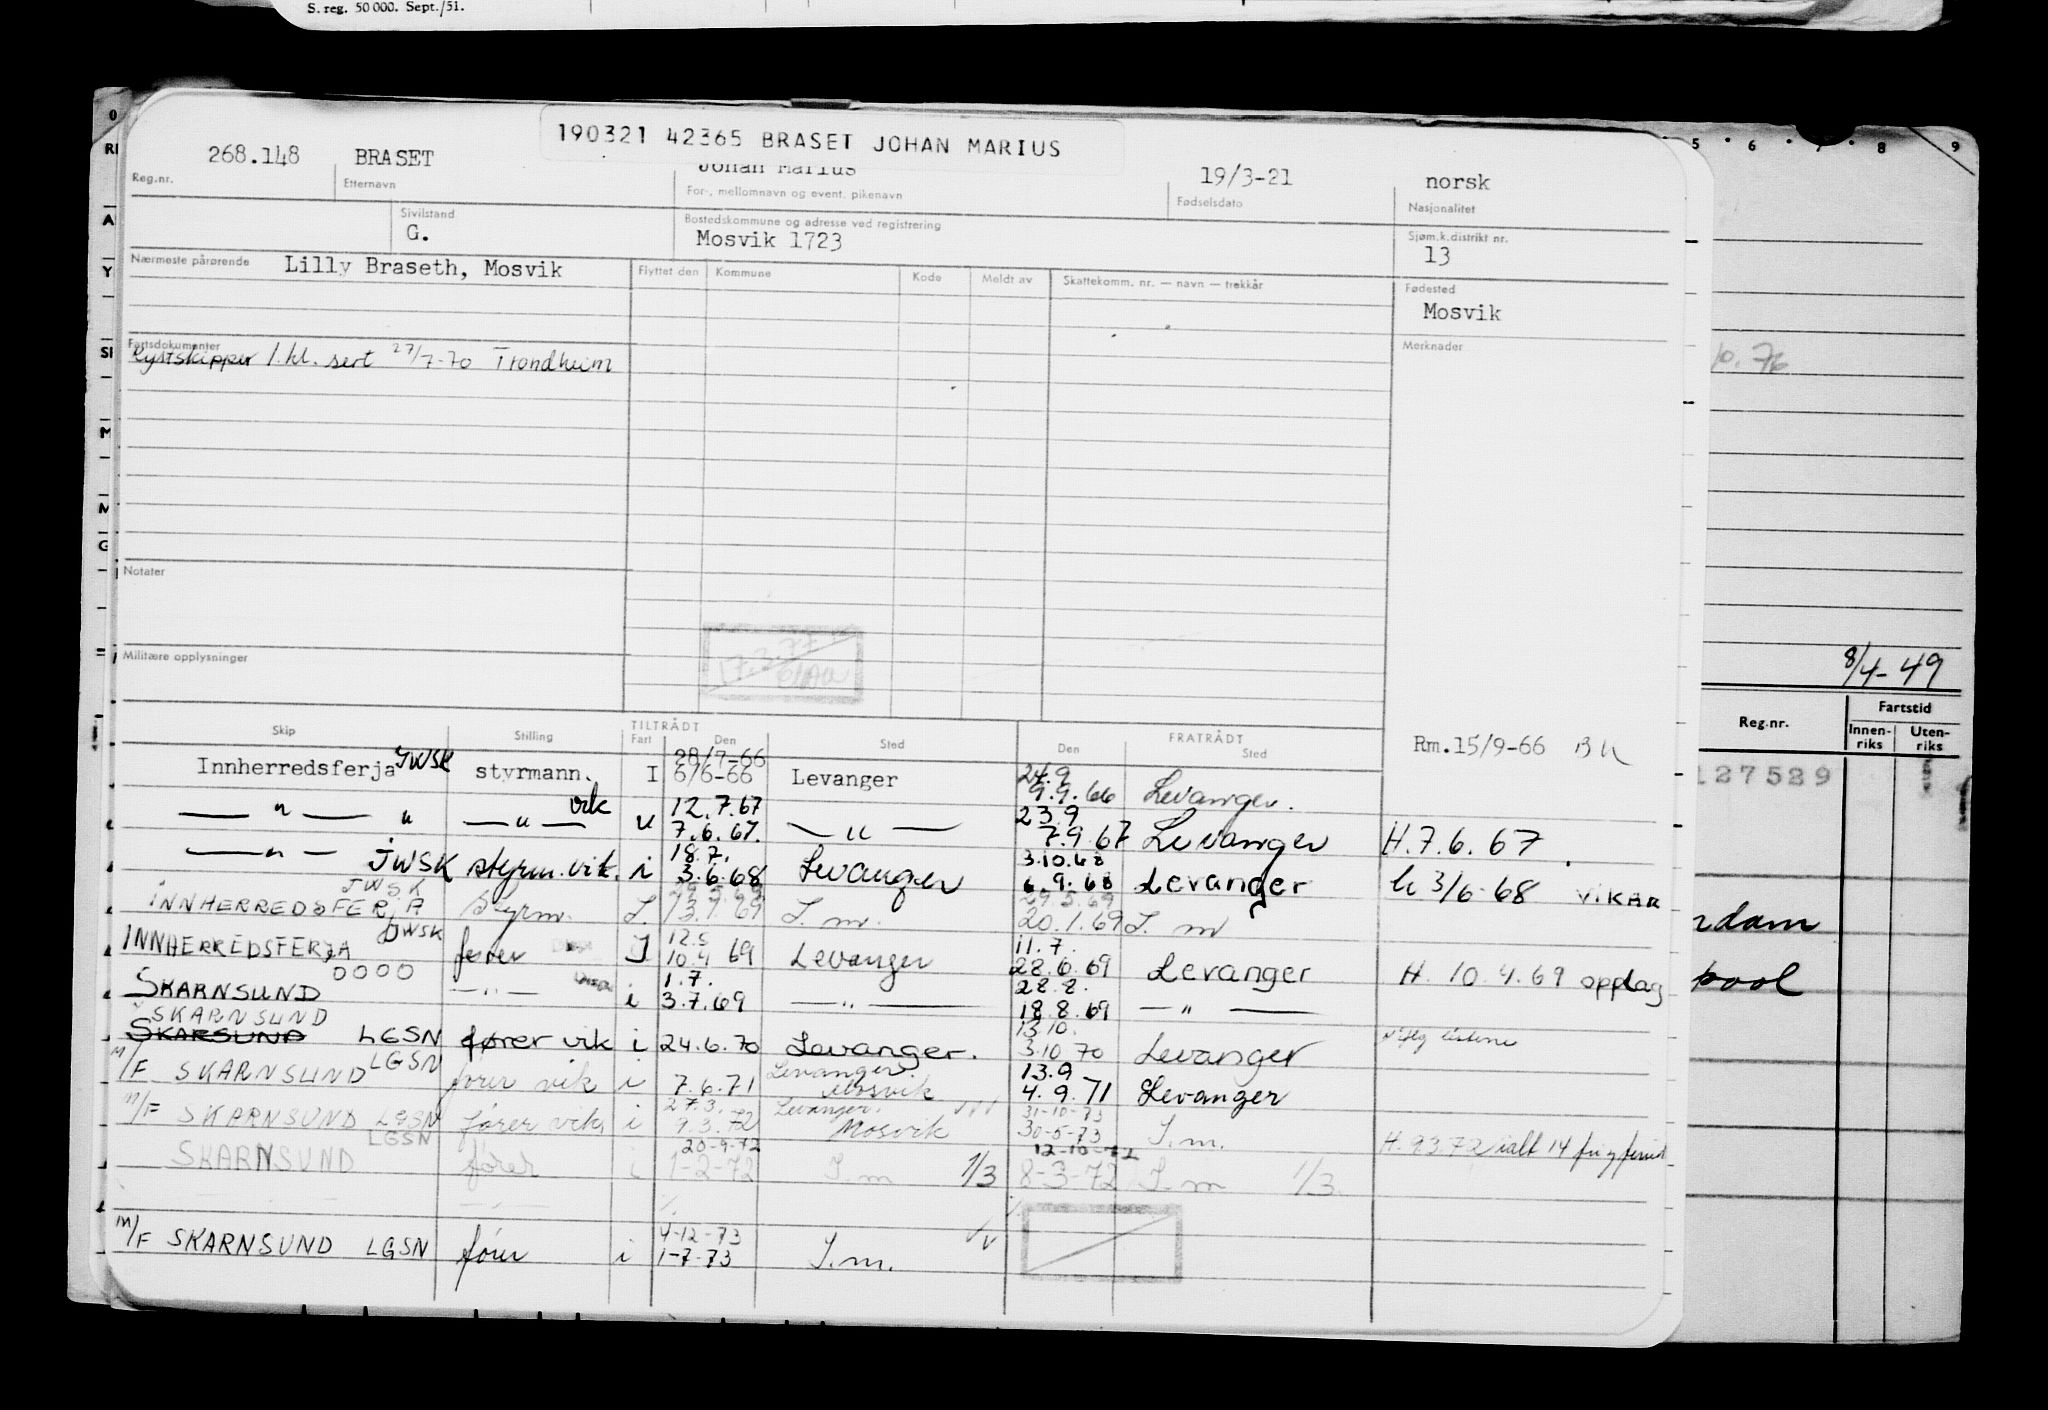 S. reg. 50 000. Sept./51.
190321 42365 BRASET JOHAN MARIUS
268.148 BRASET Johan Marius 19/3-21 norsk
Reg.nr. Etternavn For-, mellomnavn og event. pikenavn Fødselsdato Nasjonalitet
Sivilstand Bostedskommune og adresse ved registrering Sjøm.k.distrikt nr.
G. Mosvik 1723 13
Nærmeste pårørende Lilly Braseth, Mosvik Flyttet den Kommune Kode Meldt av Skattekomm. nr. — navn — trekkår Fødested
Mosvik
Fartsdokumenter Merknader
Kystskipper 1. kl. sert 27/7-70 Trondheim
Notater
Militære opplysninger
Skip Stilling TILTRÅDT Fart Den Sted FRATRÅDT Den Sted
Rm.15/9-66 BK
28/7-66 24.9
Innherredsferja JWSK styrmann. I 6/6-66 Levanger 9.9.66 Levanger.
12.7.67 23.9
— " — " — " — vik 7.6.67. — " — 7.9.67 Levanger H.7.6.67.
18.7. 3.10.68
— " — JWSK styrm. vik. i 3.6.68 Levanger 6.9.68 Levanger 3/6-68 VIKAR
JWSK 29.5.69
INNHERREDSFERJA styrm. I. 69 S. m. 20.1.69 S. m
JWSK 12.5 11.7.
INNHERREDSFERJA fører I 10.4 69 Levanger 28.6.69 Levanger H. 10.4.69 opplag
OOOO 1.7. 28.8.
SKARNSUND — " — i 3.7.69 — " — 18.8.69 — " —
SKARNSUND 13.10.
SKARSUND LGSN fører vik i 24.6.70 Levanger. 3.10 70 Levanger
LGSN Levanger. 13.9
M/F SKARNSUND fører vik i 7.6.71 Mosvik 4.9.71 Levanger
27.3. Levanger. 31-10-73
M/F SKARNSUND LGSN fører vik i 9.3.72 Mosvik 30-5-73 S.m. H. 9.3.72 ialt 14
LGSN 20-9-72 12-10-72
SKARNSUND fører i 1-2-72 S.m 1/3 8-3-72 S.m 1/3
4-12-73
M/F SKARNSUND LGSN fører i 1-7-73 S.m.
5 6 7 8 9
8/4-49
Reg.nr. Fartstid
Innen-riks Uten-riks
127529